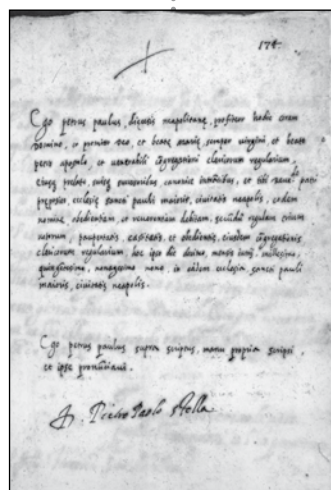 174.
Ego petrus paulus, diocesis neapolitanę, profiteor hodie coram
domino, et beatę marię, semper virgini, et beato
petro apostolo, et venerabili congregationi clericorum regularium,
eiusq prelato, suisq successoribus, canonice et tibi patri
preposito, ecclesię sancti pauli maioris, civitatis neapolis, eodem
nomine, obedientiam, et reverentiam debitam, secundum regulam trium
votorum, paupertatis, castitatis, et obedientię, eiusdem congregationis
clericorum regularium, hac die decima, mensis iunij, millesimo,
quingentesimo, nonagesimo nono, in eadem ecclesia sancti pauli
maioris, civitatis neapolis.
Ego petrus paulus supra scriptus, manu propria scripsi,
et ipse pronuntiavi.
Pietro Paolo Stella